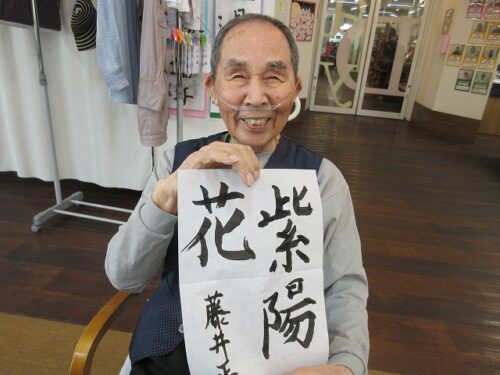 紫陽
花
藤井